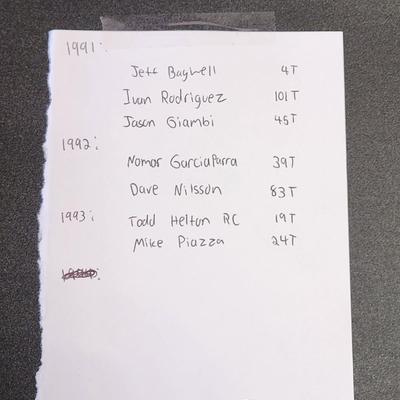 1991:
Jeff Bagwell 4T
Ivan Rodriguez 101T
Jason Giambi 45T
1992:
Nomar Garciaparra 39T
Dave Nilsson 83T
1993: Todd Helton RC 19T
Mike Piazza 24T